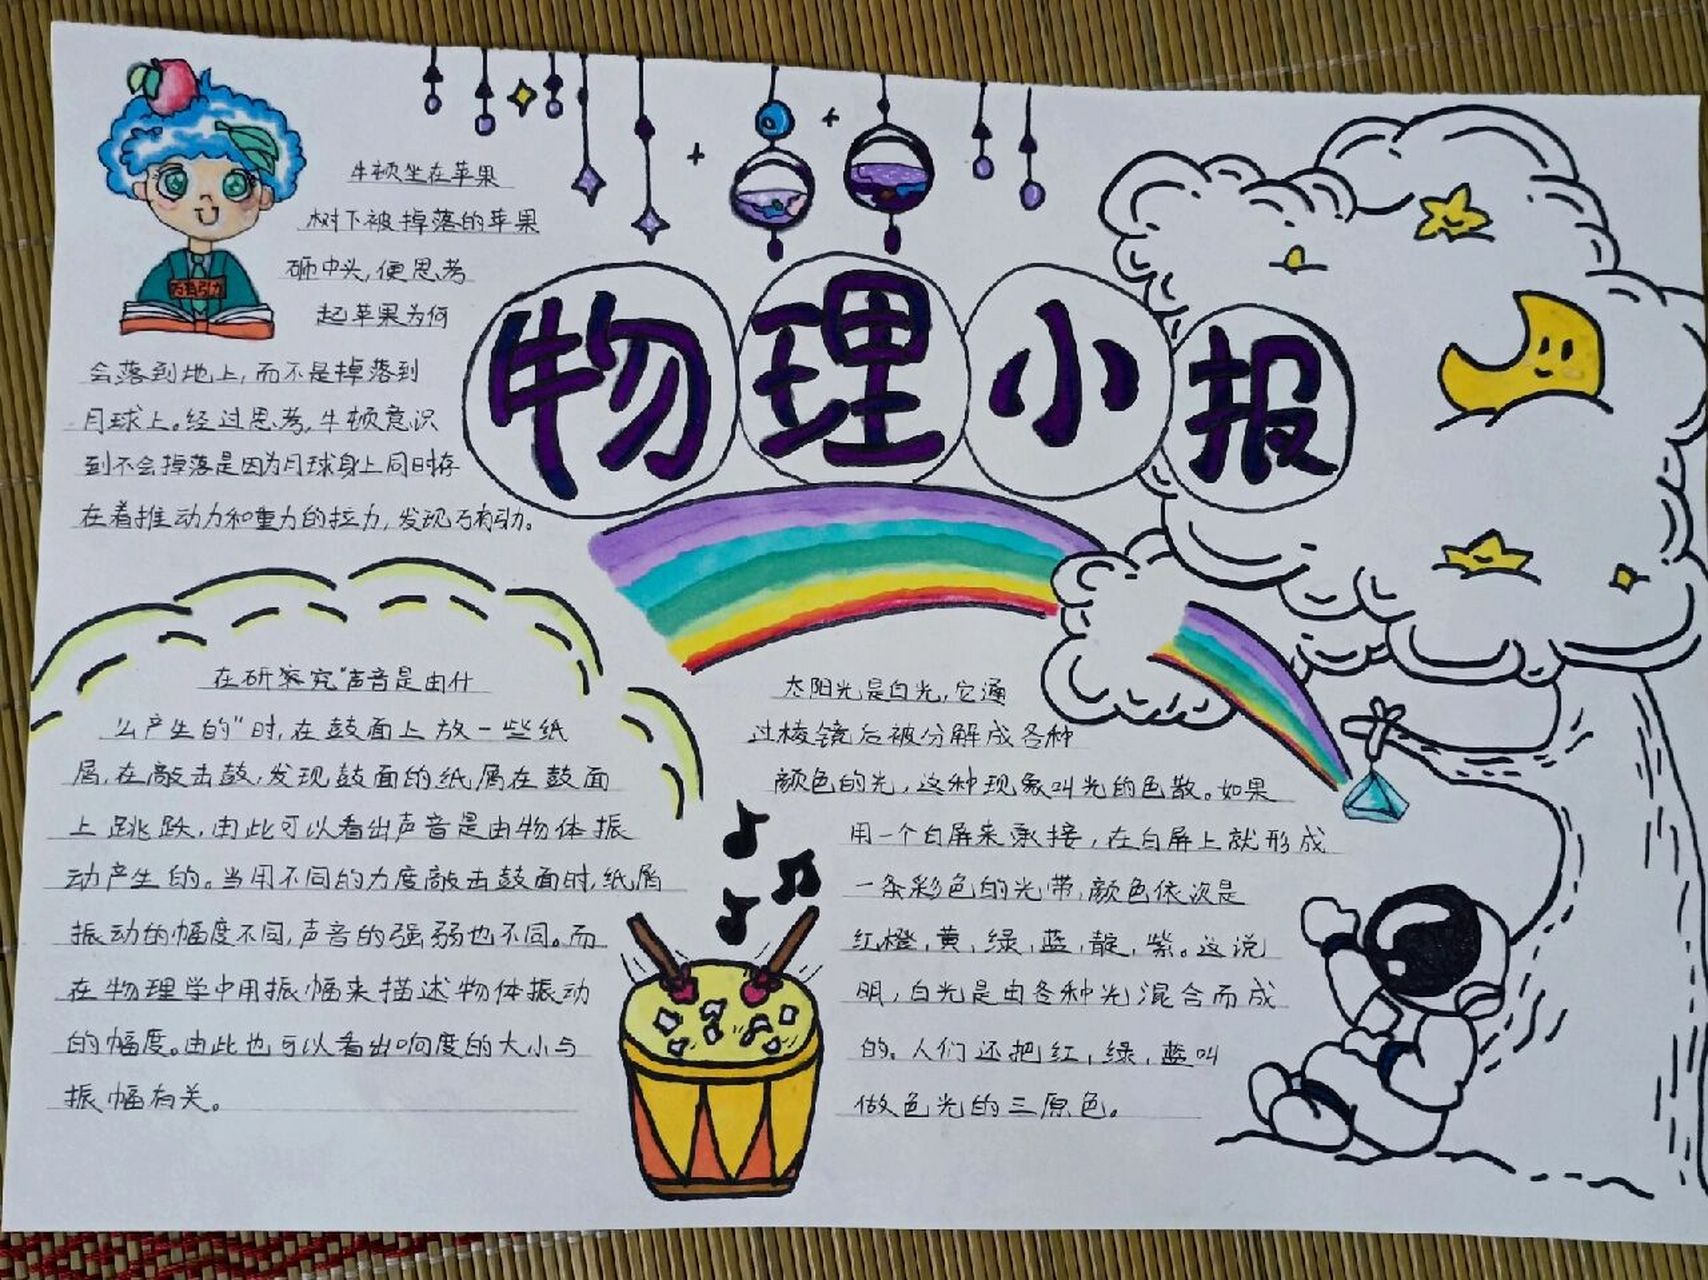 物理小报
万有引力
牛顿坐在苹果
树下被掉落的苹果
砸中头,便思考
起苹果为何
会落到地上,而不是掉落到
月球上。经过思考,牛顿意识
到不会掉落是因为月球身上同时存
在着推动力和重力的拉力,发现万有引力。
在研究究"声音是由什
么产生的"时,在鼓面上放一些纸
屑,在敲击鼓,发现鼓面的纸屑在鼓面
上跳跃,由此可以看出声音是由物体振
动产生的。当用不同的力度敲击鼓面时,纸屑
振动的幅度不同,声音的强弱也不同。而
在物理学中用振幅来描述物体振动
的幅度。由此也可以看出响度的大小与
振幅有关。
太阳光是白光,它通
过棱镜后被分解成各种
颜色的光,这种现象叫光的色散。如果
用一个白屏来承接,在白屏上就形成
一条彩色的光带,颜色依次是
红,橙,黄,绿,蓝,靛,紫。这说
明,白光是由各种光混合而成
的。人们还把红,绿,蓝叫
做色光的三原色。